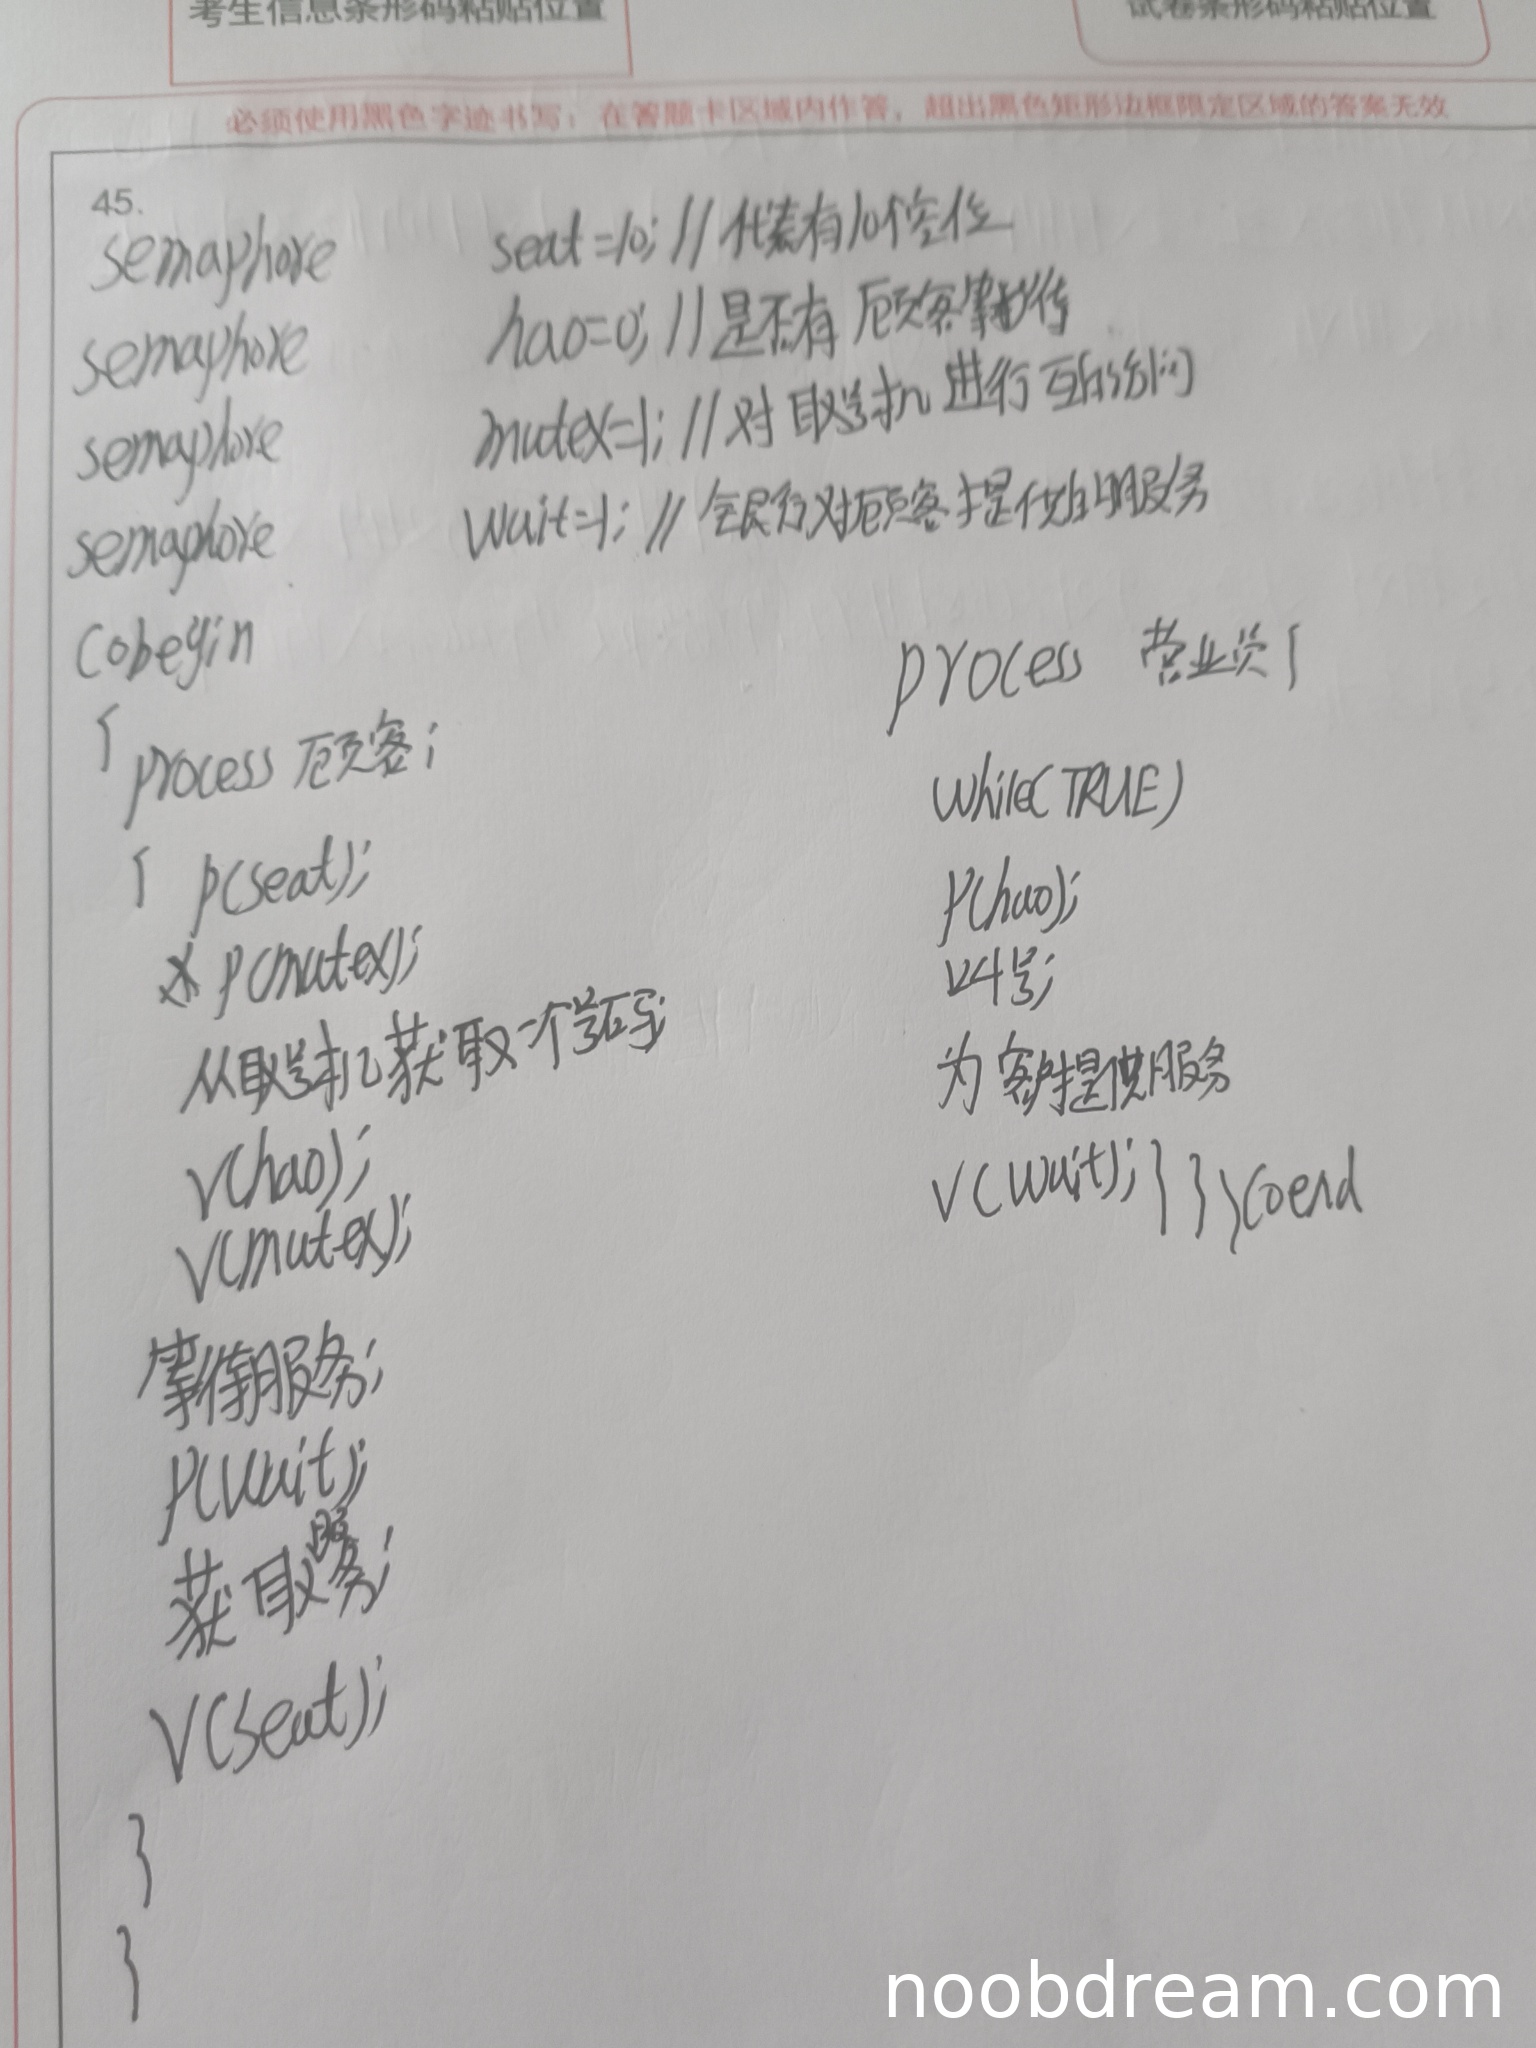 考生信息条形码粘贴位置
试卷条形码粘贴位置
必须使用黑色字迹书写；在答题卡区域内作答，超出黑色矩形边框限定区域的答案无效
45.
semaphore seat=10; // 代表有10个空位
semaphore hao=0; // 是否有顾客等待
semaphore mutex=1; // 对取号机进行互斥访问
semaphore wait=1; // 对顾客提供的服务
cobegin
{
process 顾客;
{ p(seat);
p(mutex);
从取号机获取一个号码;
V(hao);
V(mutex);
等待服务;
P(wait);
获取服务;
V(seat);
}
}
process 营业员{
while(TRUE)
P(hao);
叫号;
为客户提供服务
V(wait); } } } coend
noobdream.com